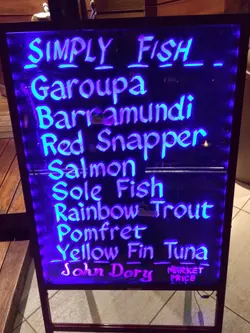 SIMPLY FISH
Garoupa
Barramundi
Red Snapper
Salmon
Sole Fish
Rainbow Trout
Pomfret
Yellow Fin Tuna
John Dory MARKET PRICE